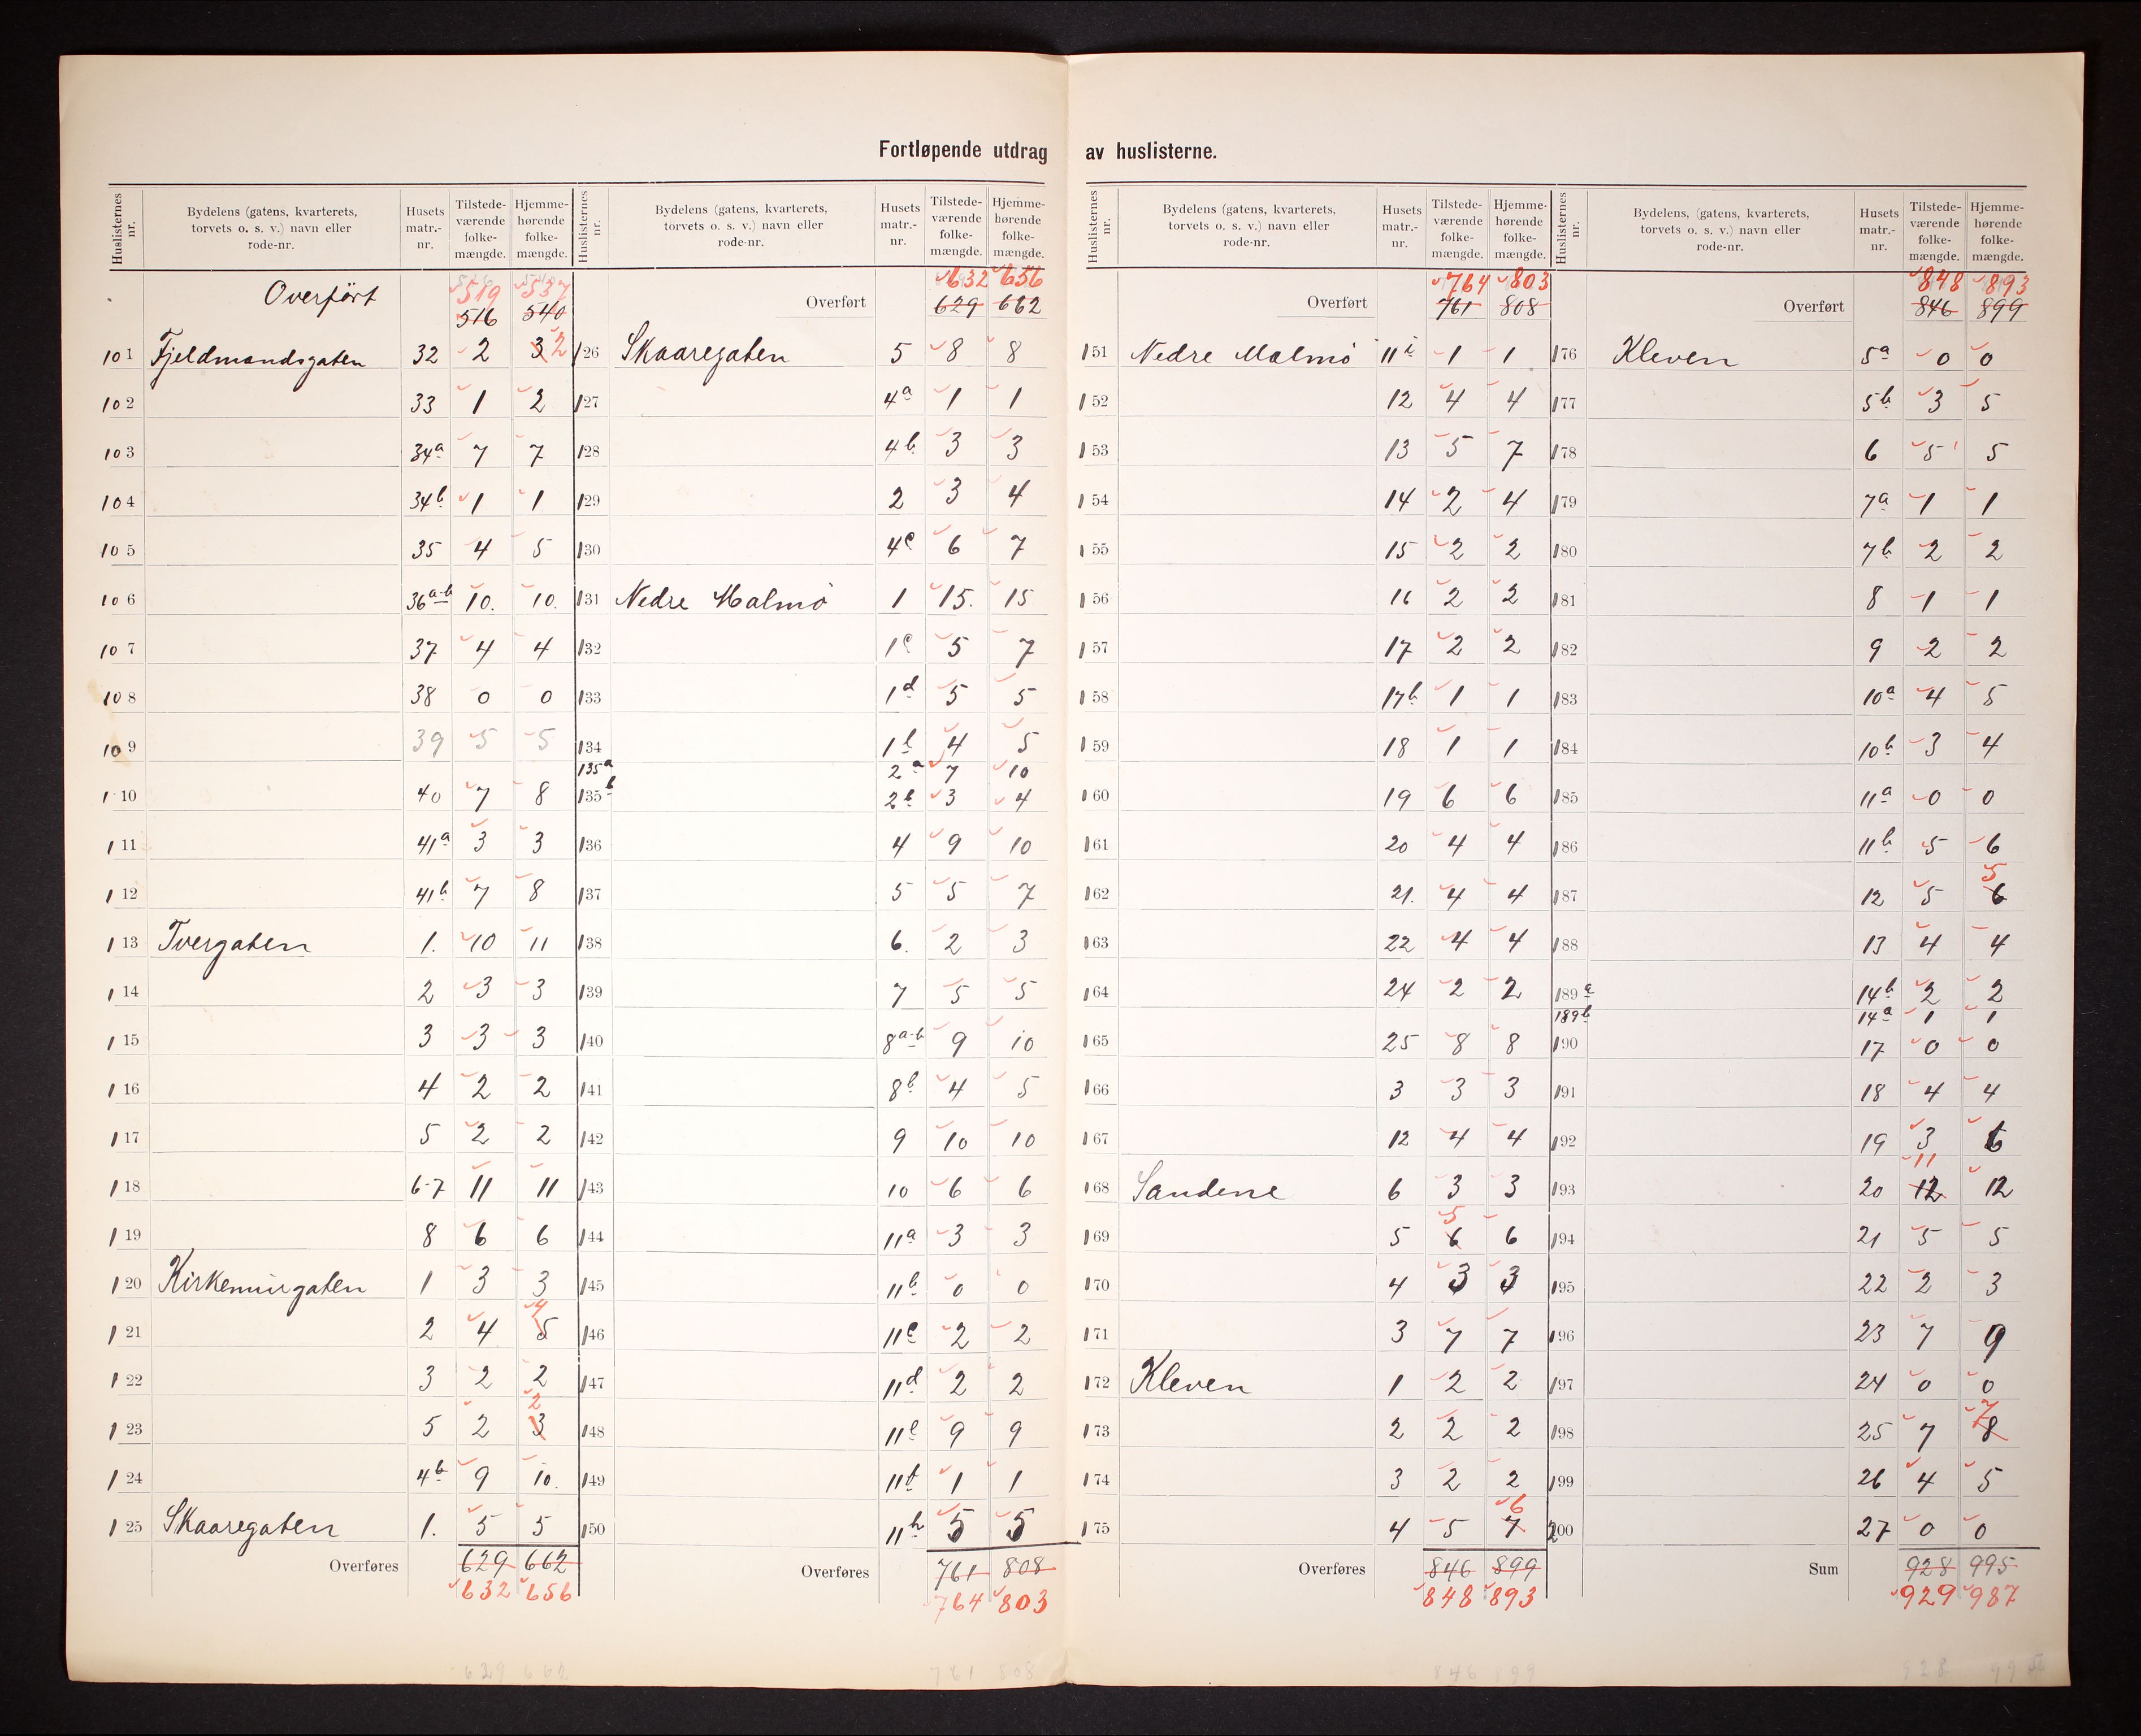 Fortløpende utdrag av huslisterne.
Huslisternes nr. | Bydelens (gatens, kvarterets, torvets o. s. v.) navn eller rode-nr. | Husets matr.-nr. | Tilstede-værende folke-mængde. | Hjemme-hørende folke-mængde.
Overført 519 537
516 540
101 Fjeldmandsgaten 32 2 3 2
102 33 1 2
103 34a 7 7
104 34b 1 1
105 35 4 5
106 36a-b 10. 10.
107 37 4 4
108 38 0 0
109 39 5 5
110 40 7 8
111 41a 3 3
112 41b 7 8
113 Tvergaten 1. 10 11
114 2 3 3
115 3 3 3
116 4 2 2
117 5 2 2
118 6-7 11 11
119 8 6 6
120 Kirkemyrgaten 1 3 3
121 2 4 5 4
122 3 2 2
123 5 2 3 2
124 4b 9 10.
125 Skaaregaten 1. 5 5
Overføres 629 662
632 656
629 662
Huslisternes nr. | Bydelens (gatens, kvarterets, torvets o. s. v.) navn eller rode-nr. | Husets matr.-nr. | Tilstede-værende folke-mængde. | Hjemme-hørende folke-mængde.
632 656
Overført 629 662
126 Skaaregaten 5 8 8
127 4a 1 1
128 4b 3 3
129 2 3 4
130 4c 6 7
131 Nedre Malmö 1 15. 15
132 1c 5 7
133 1d 5 5
134 1b 4 5
135a 2a 7 10
135b 2b 3 4
136 4 9 10
137 5 5 7
138 6. 2 3
139 7 5 5
140 8a-b 9 10
141 8b 4 5
142 9 10 10
143 10 6 6
144 11a 3 3
145 11b 0 0
146 11c 2 2
147 11d 2 2
148 11e 9 9
149 11f 1 1
150 11h 5 5
Overføres 761 808
764 803
761 808
Huslisternes nr. | Bydelens (gatens, kvarterets, torvets o. s. v.) navn eller rode-nr. | Husets matr.-nr. | Tilstede-værende folke-mængde. | Hjemme-hørende folke-mængde.
764 803
Overført 761 808
151 Nedre Malmö 11i 1 1
152 12 4 4
153 13 5 7
154 14 2 4
155 15 2 2
156 16 2 2
157 17 2 2
158 17b 1 1
159 18 1 1
160 19 6 6
161 20 4 4
162 21. 4 4
163 22 4 4
164 24 2 2
165 25 8 8
166 3 3 3
167 12 4 4
168 Sandene 6 3 3
169 5 6 5 6
170 4 3 3
171 3 7 7
172 Kleven 1 2 2
173 2 2 2
174 3 2 2
175 4 5 7 6
Overføres 846 899
848 893
846 899
Huslisternes nr. | Bydelens, (gatens, kvarterets, torvets o. s. v.) navn eller rode-nr. | Husets matr.-nr. | Tilstede-værende folke-mængde. | Hjemme-hørende folke-mængde.
848 893
Overført 846 899
176 Kleven 5a 0 0
177 5b 3 5
178 6 5 5
179 7a 1 1
180 7b 2 2
181 8 1 1
182 9 2 2
183 10a 4 5
184 10b 3 4
185 11a 0 0
186 11b 5 6
187 12 5 6 5
188 13 4 4
189a 14b 2 2
189b 14a 1 1
190 17 0 0
191 18 4 4
192 19 3 6
193 20 12 11 12
194 21 5 5
195 22 2 3
196 23 7 9
197 24 0 0
198 25 7 8 7
199 26 4 5
200 27 0 0
Sum 928 995
929 987
928